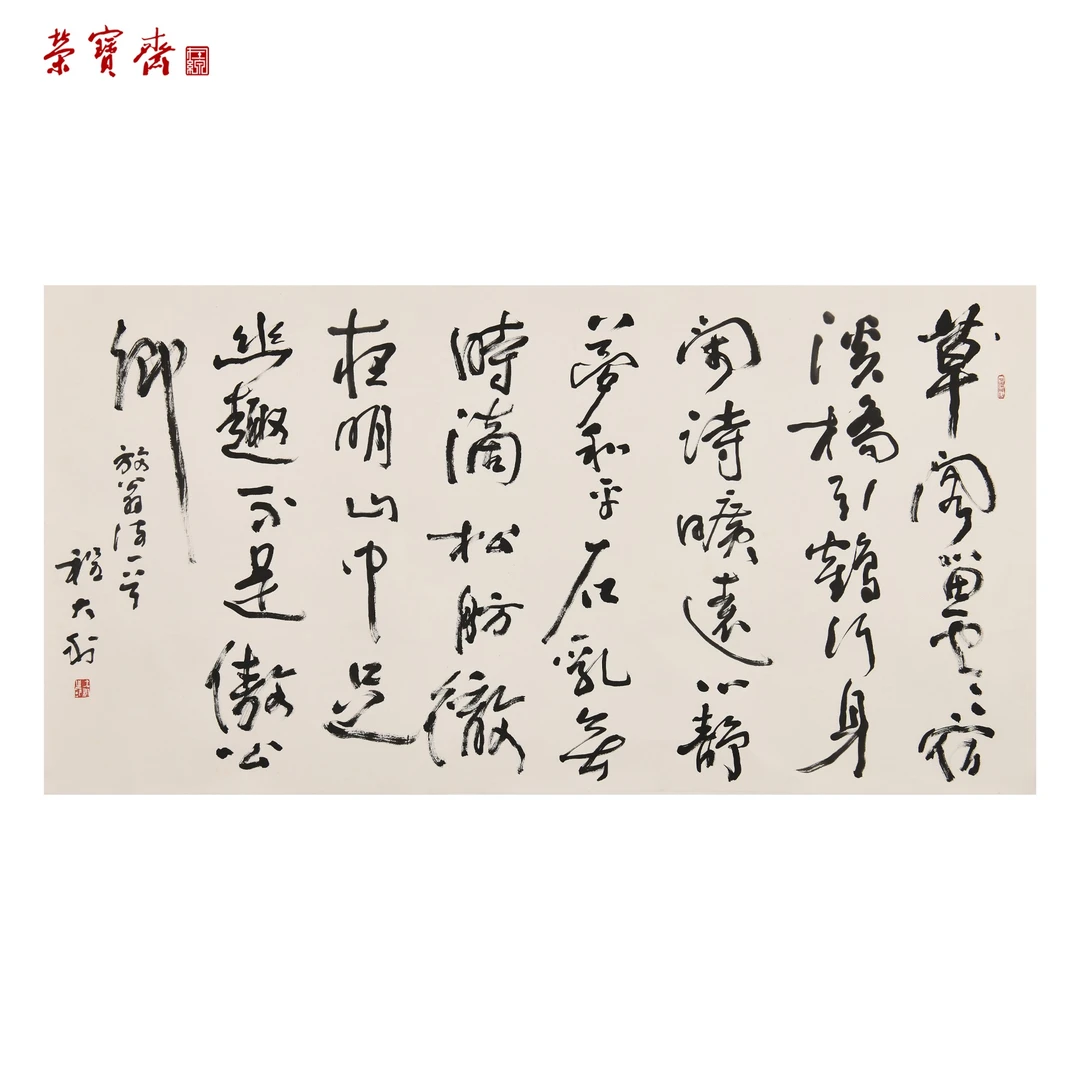 榮寶齋
草閣留雲宿
溪橋引鶴行身
閑詩曠遠心靜
夢和平石乳無
時滴松肪徹
夜明山中足
幽趣不是傲公
卿
放翁詩一首
程大利